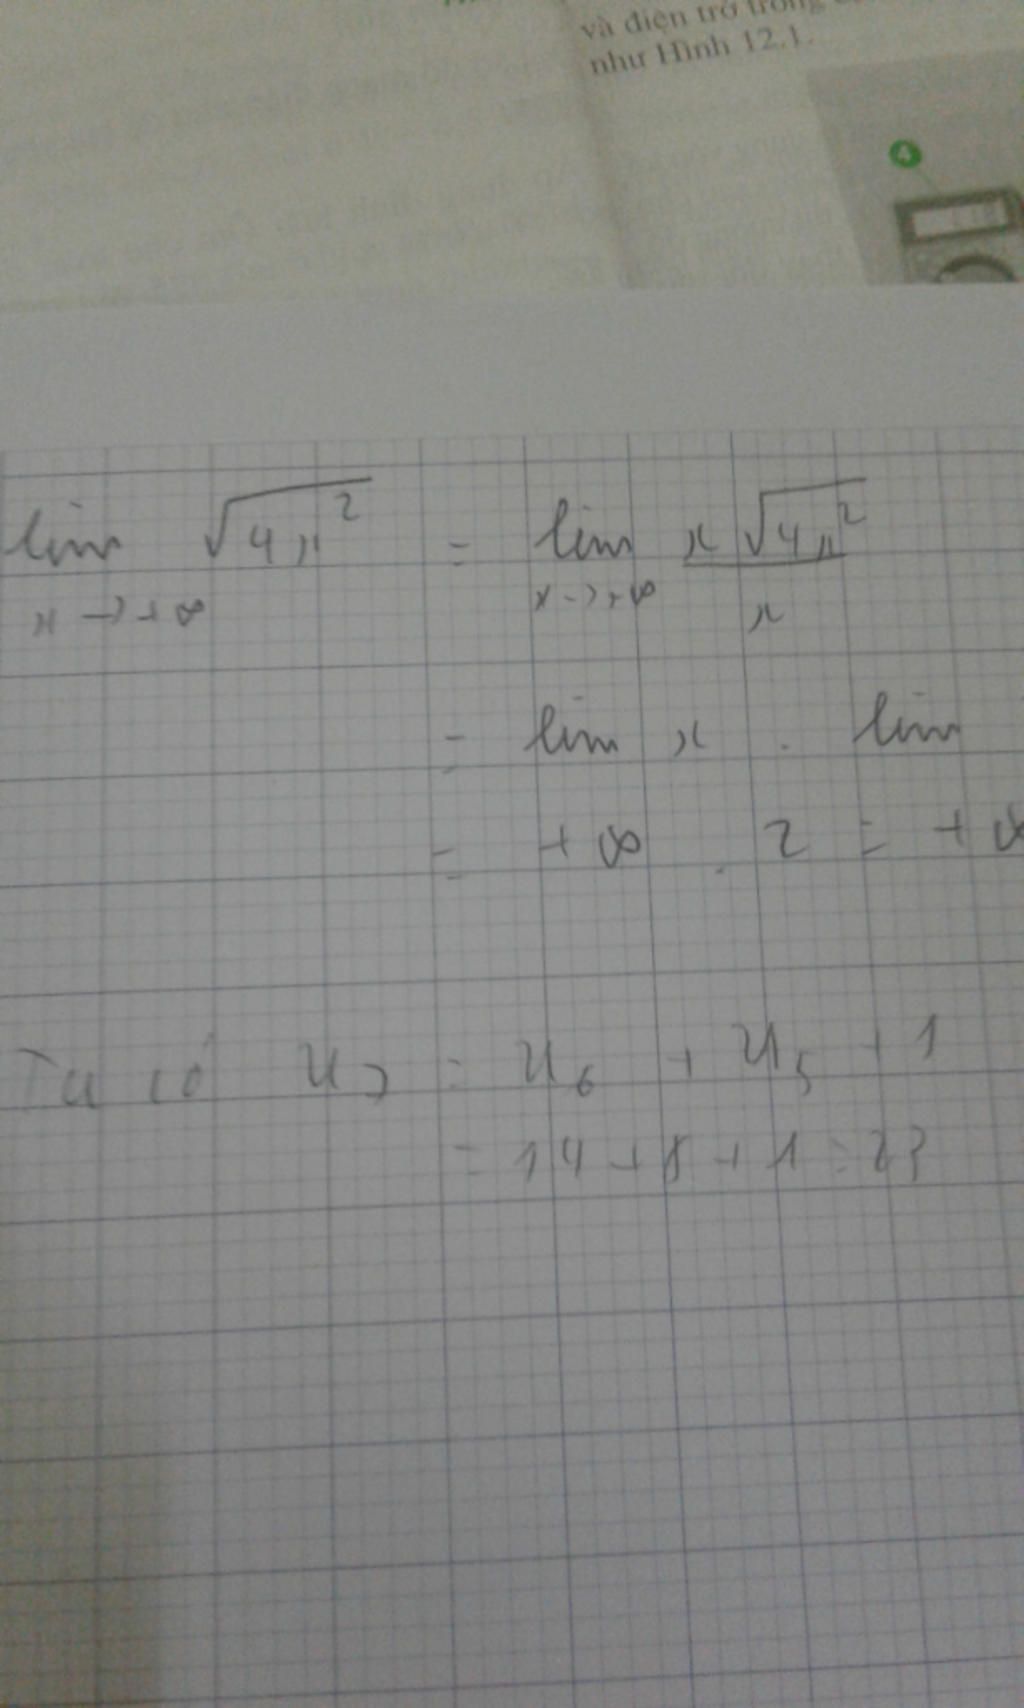 và điện trở trong
như Hình 12.1.
4
lim √4x² = lim x√4x²
x → +∞ x → +∞ x
= lim x . lim
= +∞ . 2 = +∞
Ta có u₇ = u₆ + u₅ + 1
= 14 + 8 + 1 = 23